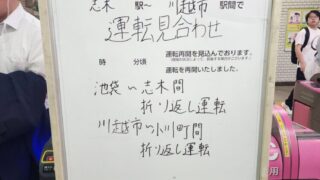 志木 駅〜 川越市 駅間で
運転見合わせ
時 分頃 運転再開を見込んでおります。
運転を再開いたしました。
池袋〜志木間
折り返し運転
川越市〜小川町間
折り返し運転
用